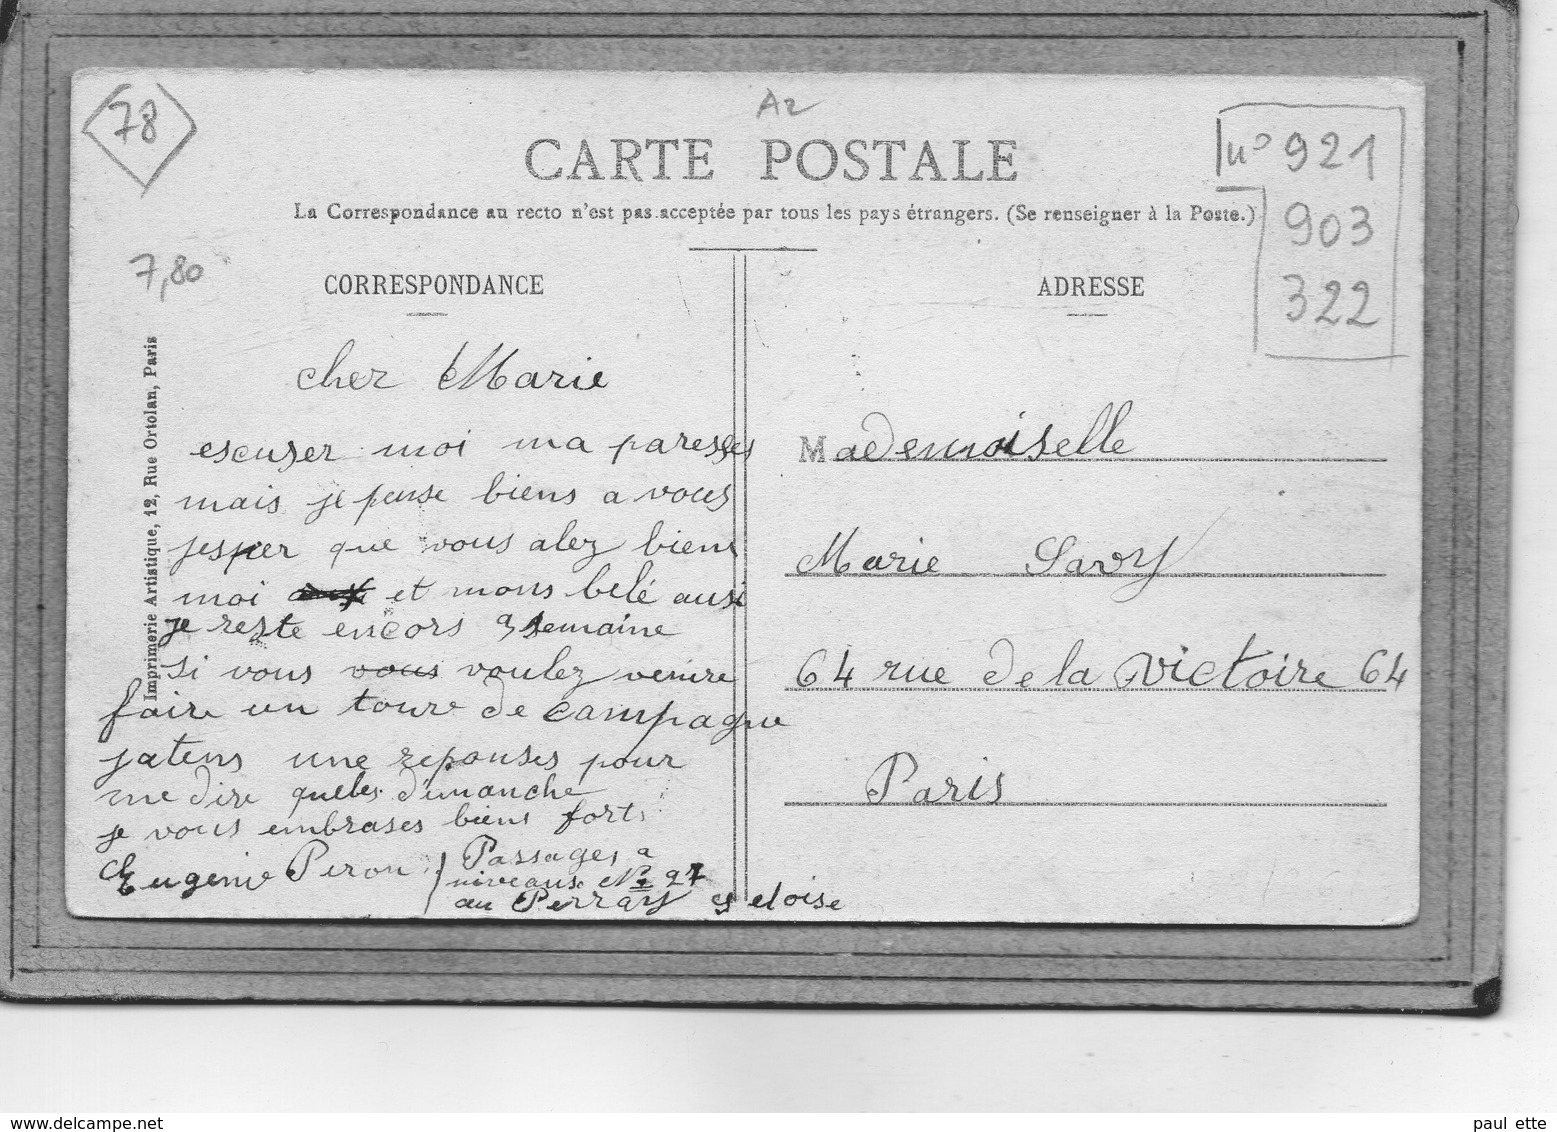 78
A2
CARTE POSTALE
n° 921
903
322
La Correspondance au recto n'est pas acceptée par tous les pays étrangers. (Se renseigner à la Poste.)
7,80
CORRESPONDANCE
ADRESSE
Imprimerie Artistique, 12, Rue Ortolan, Paris
cher Marie
escuser moi ma paresses
mais je pense biens a vous
jesper que vous alez biens
moi et mons bebé ausi
je reste encors 3 semaine
si vous vous voulez venire
faire un toure de campagne
jatens une reponses pour
me dire queles dimanche
je vous embrases biens forts
Eugenie Peron
Passages a
niveaux N° 27
au Perray S et oise
Mademoiselle
Marie Savy
64 rue de la Victoire 64
Paris
www.delcampe.net
paul ette